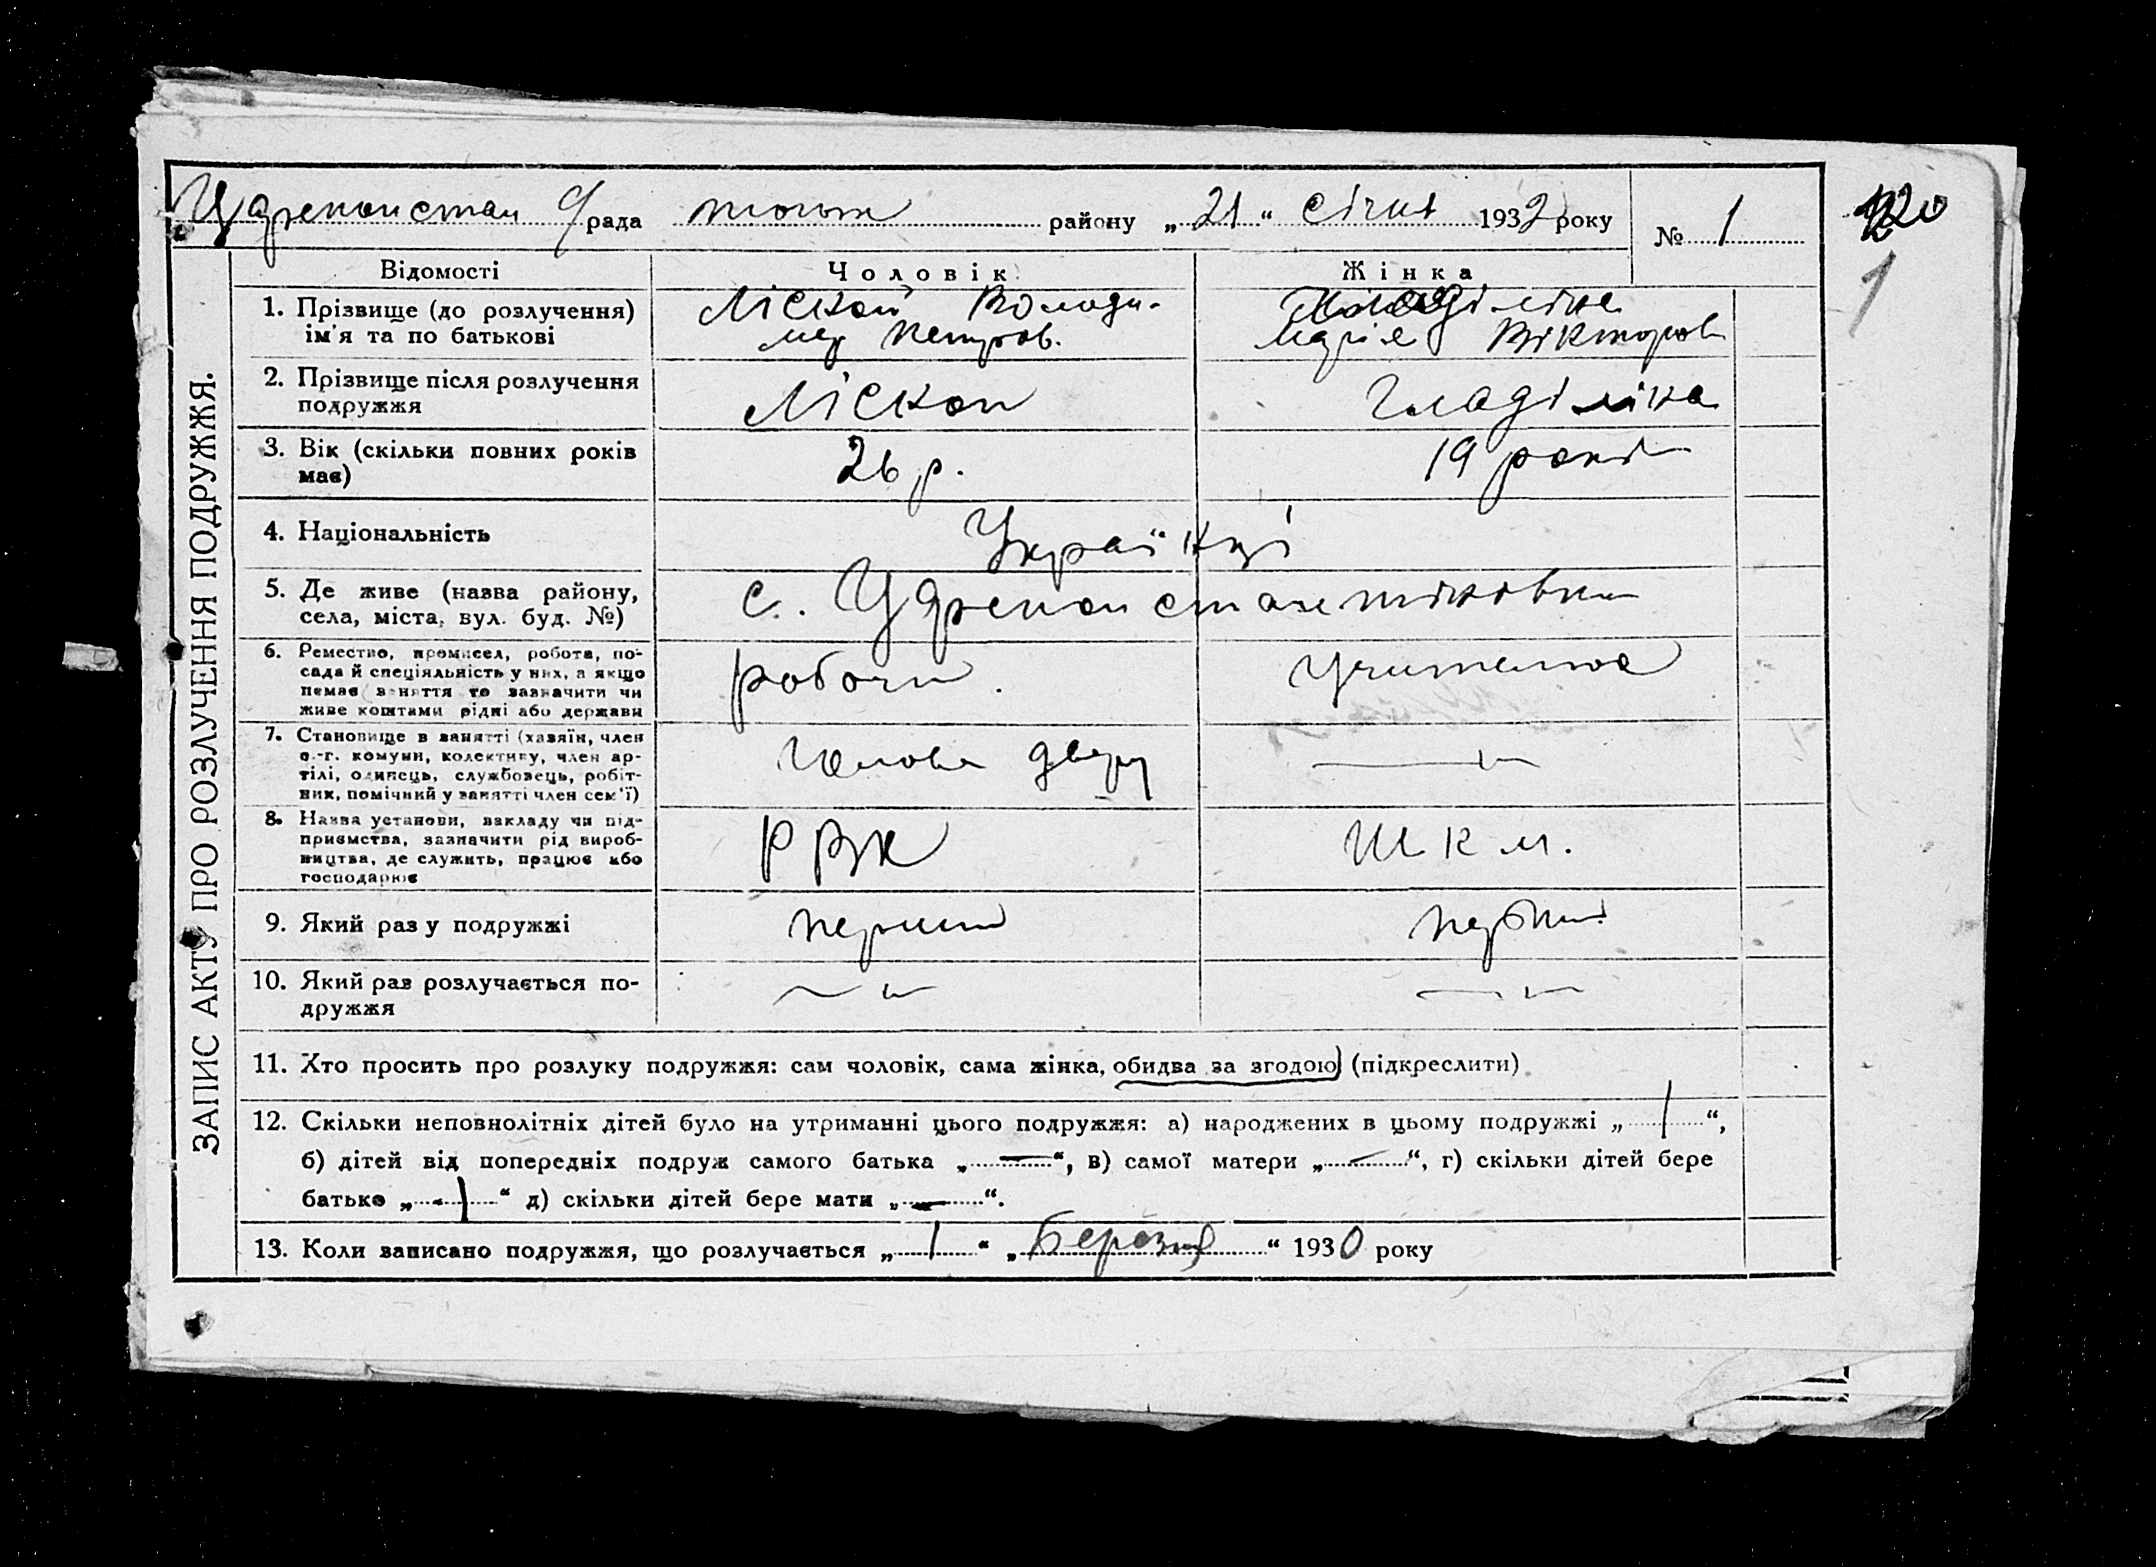 с/рада району „21“ січня 1932 року
№ 1
120
1
ЗАПИС АКТУ ПРО РОЗЛУЧЕННЯ ПОДРУЖЖЯ.
Відомості Чоловік Жінка
1. Прізвище (до розлучення) Володи-
ім'я та по батькові мер Петров. Марія Вікторов
2. Прізвище після розлучення Гладіліна
подружжя
3. Вік (скільки повних років 26 р. 19 років
має)
4. Національність Українці
5. Де живе (назва району, с.
села, міста, вул. буд. №)
6. Ремество, промисел, робота, по- робочи Учителька
сада й спеціяльність у них, а якщо
немає заняття то зазначити чи
живе коштами рідні або держави
7. Становище в занятті (хазяїн, член Голова двору —„—
с.-г. комуни, колективу, член ар-
тілі, одинець, службовець, робіт-
ник, помічний у занятті член сем'ї)
8. Назва установи, закладу чи під- РВК ШКМ.
приємства, зазначити рід вироб-
ництва, де служить, працює або
господарює
9. Який раз у подружжі перший перший
10. Який раз розлучається по- —„— —„—
дружжя
11. Хто просить про розлуку подружжя: сам чоловік, сама жінка, обидва за згодою (підкреслити)
12. Скільки неповнолітніх дітей було на утриманні цього подружжя: а) народжених в цьому подружжі „1“,
б) дітей від попередніх подруж самого батька „—“, в) самої матери „—“, г) скільки дітей бере
батько „-1“ д) скільки дітей бере мати „—“.
13. Коли записано подружжя, що розлучається „1“ „Березня“ 1930 року